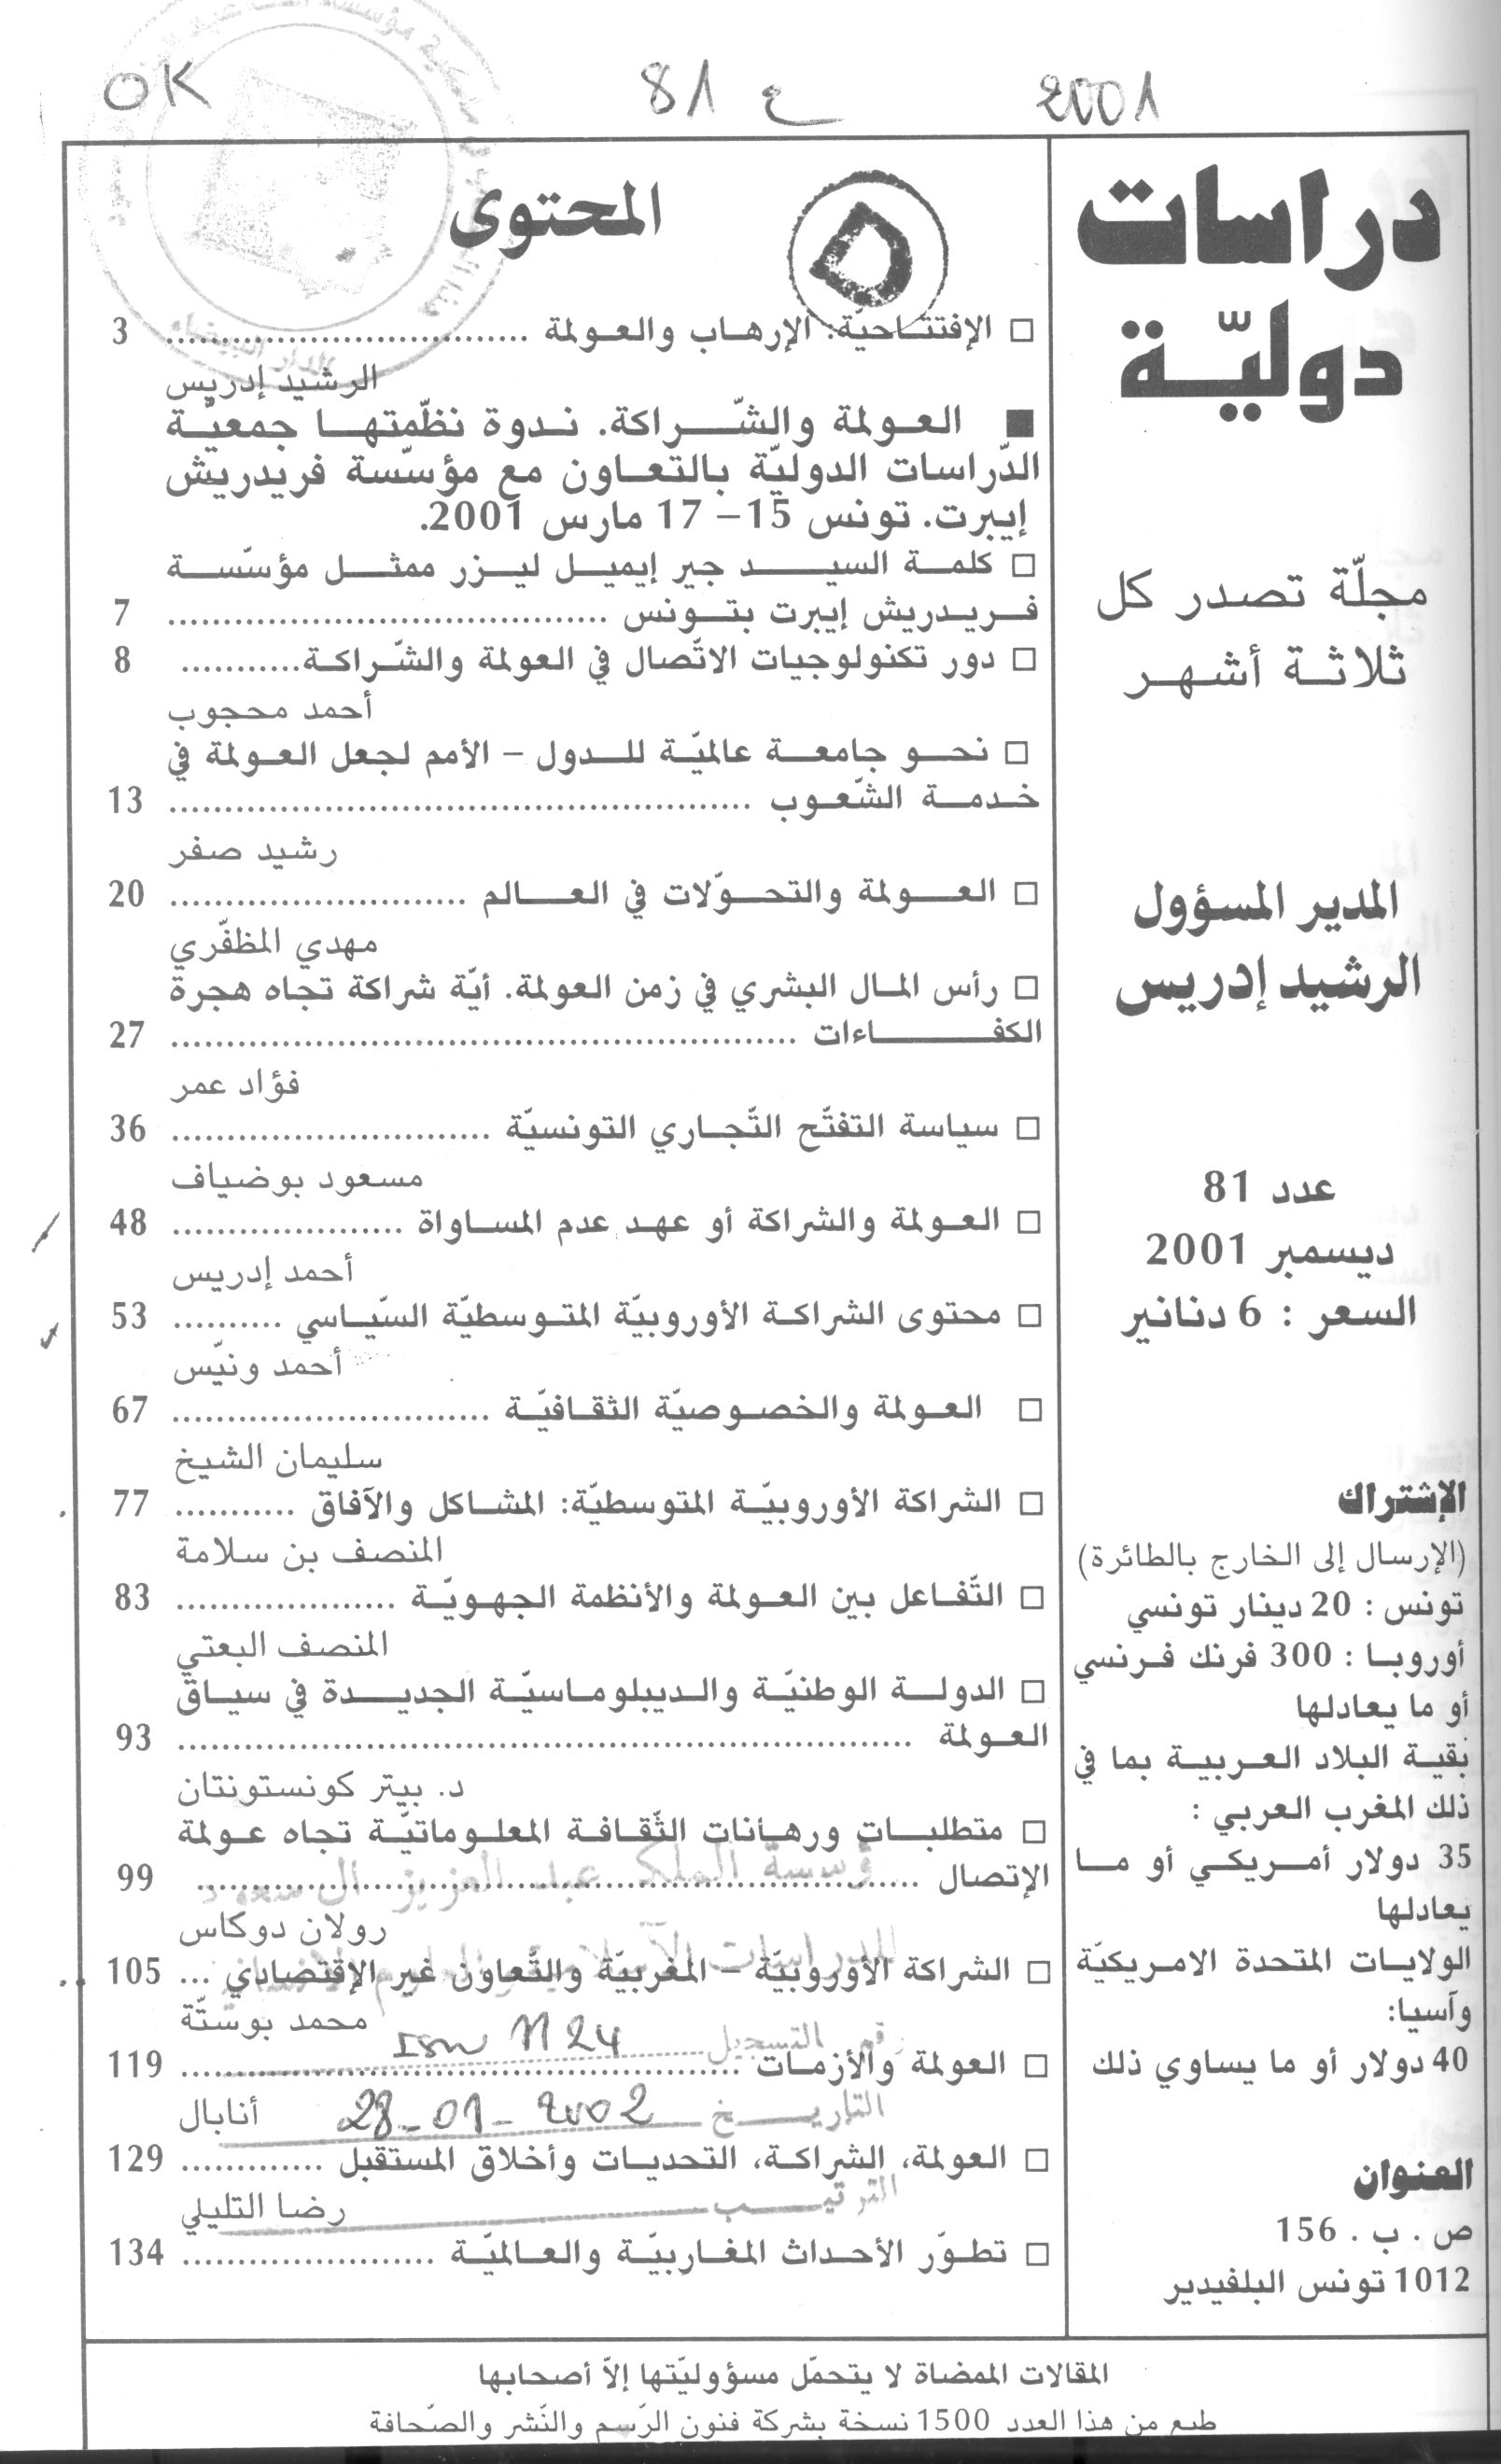 OK
81 ع
2001
دراسات
دوليّة
مجلّة تصدر كل
ثلاثة أشهر
المدير المسؤول
الرشيد إدريس
عدد 81
ديسمبر 2001
السعر : 6 دنانير
الإشتراك
(الإرسال إلى الخارج بالطائرة)
تونس : 20 دينار تونسي
أوروبا : 300 فرنك فرنسي
أو ما يعادلها
بقية البلاد العربية بما في
ذلك المغرب العربي :
35 دولار أمريكي أو ما
يعادلها
الولايات المتحدة الامريكيّة
وآسيا:
40 دولار أو ما يساوي ذلك
العنوان
ص . ب . 156
1012 تونس البلفيدير
المحتوى
□ الإفتتاحيّة: الإرهاب والعولمة ................................ 3
الرشيد إدريس
■ العولمة والشّراكة. ندوة نظّمتها جمعيّة
الدّراسات الدوليّة بالتعاون مع مؤسّسة فريدريش
إيبرت. تونس 15– 17 مارس 2001.
□ كلمة السيد جير إيميل ليزر ممثل مؤسّسة
فريدريش إيبرت بتونس ....................................... 7
□ دور تكنولوجيات الاتّصال في العولمة والشّراكة........... 8
أحمد محجوب
□ نحو جامعة عالميّة للدول – الأمم لجعل العولمة في
خدمة الشّعوب .................................................... 13
رشيد صفر
□ العولمة والتحوّلات في العالم ........................... 20
مهدي المظفّري
□ رأس المال البشري في زمن العولمة. أيّة شراكة تجاه هجرة
الكفاءات ........................................................ 27
فؤاد عمر
□ سياسة التفتّح التّجاري التونسيّة ............................. 36
مسعود بوضياف
□ العولمة والشراكة أو عهد عدم المساواة ..................... 48
أحمد إدريس
□ محتوى الشراكة الأوروبيّة المتوسطيّة السّياسي .......... 53
أحمد ونيّس
□ العولمة والخصوصيّة الثقافيّة ............................. 67
سليمان الشيخ
□ الشراكة الأوروبيّة المتوسطيّة: المشاكل والآفاق ........... 77
المنصف بن سلامة
□ التّفاعل بين العولمة والأنظمة الجهويّة .................... 83
المنصف البعتي
□ الدولة الوطنيّة والديبلوماسيّة الجديدة في سياق
العولمة .................................................................. 93
د. بيتر كونستونتان
□ متطلبات ورهانات الثّقافة المعلوماتيّة تجاه عولمة
الإتصال ................................................................. 99
رولان دوكاس
□ الشراكة الأوروبيّة – المغربيّة والتّعاون غير الإقتصادي ... 105
محمد بوستّة
□ العولمة والأزمات .................................................. 119
أنابال
□ العولمة، الشراكة، التحديات وأخلاق المستقبل ............. 129
رضا التليلي
□ تطوّر الأحداث المغاربيّة والعالميّة ....................... 134
مؤسسة الملك عبد العزيز آل سعود
للدراسات الاسلامية والعلوم الانسانية
رقم التسجيل 1124
التاريخ 28-01-2002
الترتيب
المقالات الممضاة لا يتحمّل مسؤوليّتها إلاّ أصحابها
طبع من هذا العدد 1500 نسخة بشركة فنون الرّسم والنّشر والصّحافة